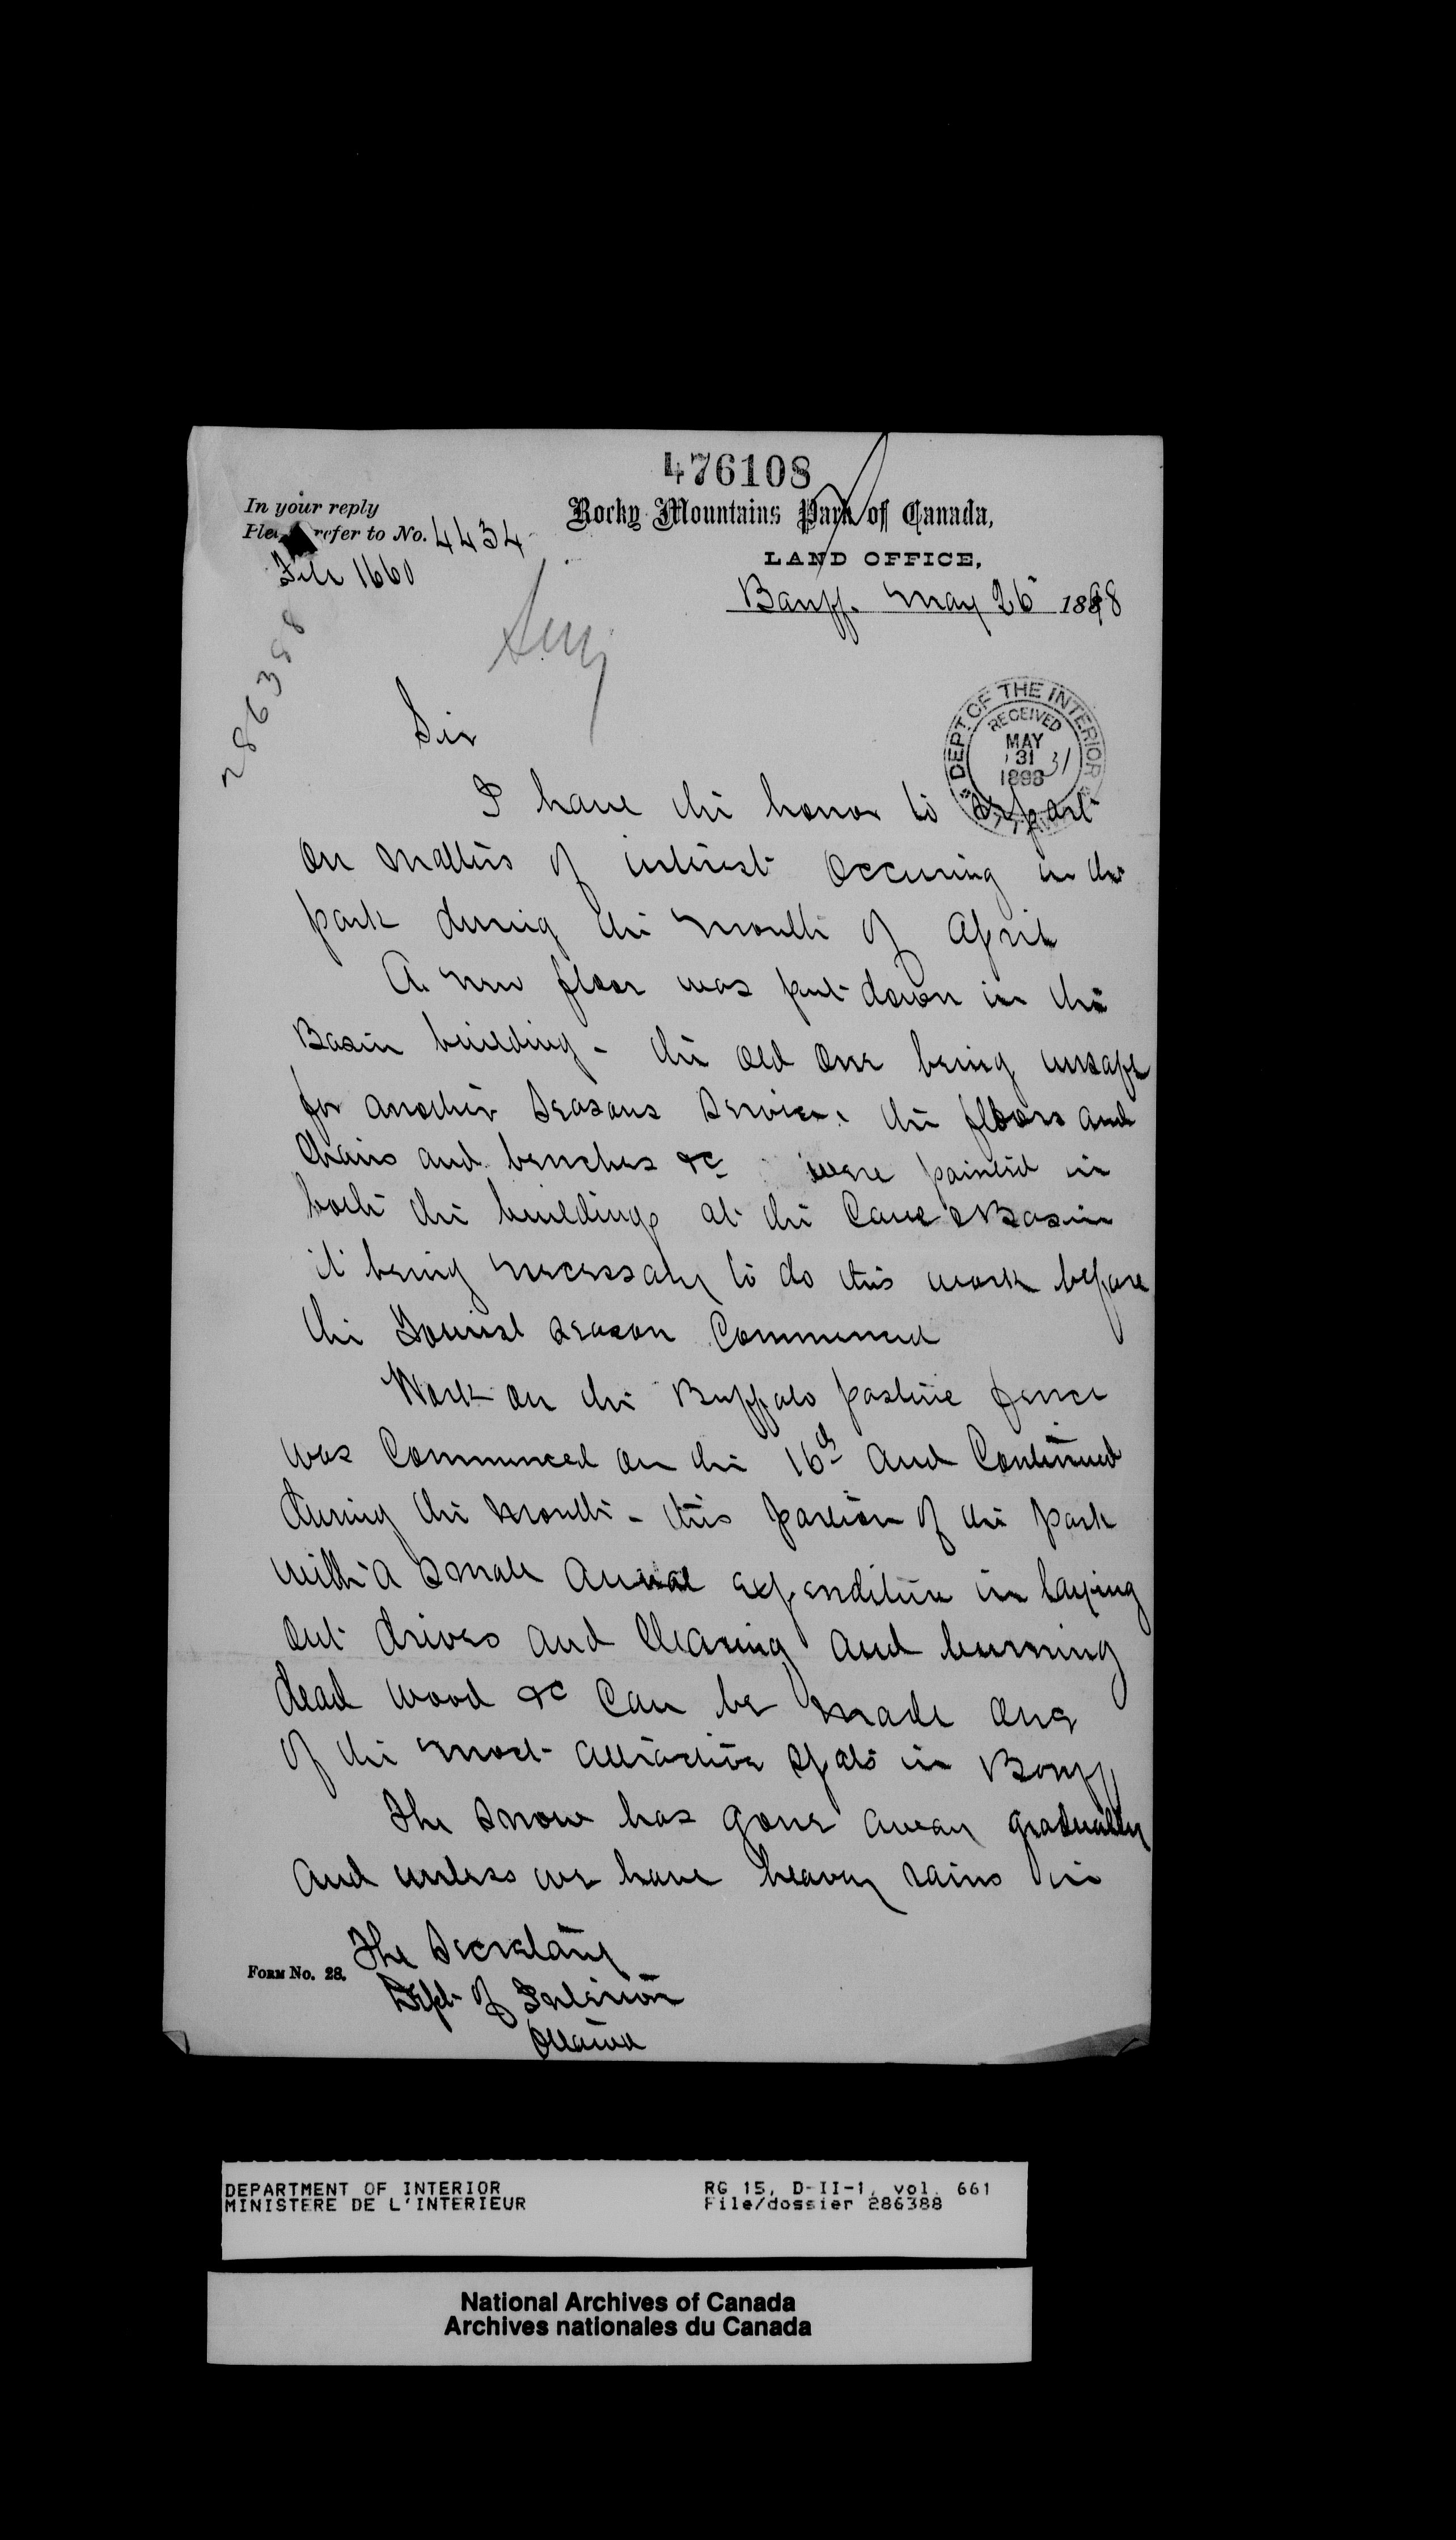 476108
In your reply
Please refer to No. 4434
File 1660
Rocky Mountains Park of Canada,
LAND OFFICE,
Banff. May 26 1898
286388
DEPT OF THE INTERIOR
RECEIVED
MAY
31
1898
31
Sir
I have the honor to report
on matters of interest occuring in the
park during the month of April
A new floor was put down in the
Basin building - the old one being unsafe
for another seasons service. the floors and
Chairs and benches &c were painted in
both the buildings at the Cave & Basin
it being necessary to do this work before
the Tourist season Commenced
Work on the Buffalo pasture fence
was Commenced on the 16th and Continued
during the month - this portion of the park
with a small anual expenditure in laying
out drives and Clearing and burning
dead wood &c Can be made one
of the most attractive spots in Banff
The snow has gone away gradually
and unless we have heavy rains in
The Secretary
Dept of Interior
Ottawa
FORM No. 28.
DEPARTMENT OF INTERIOR
MINISTERE DE L'INTERIEUR
RG 15, D-II-1, vol. 661
File/dossier 286388
National Archives of Canada
Archives nationales du Canada